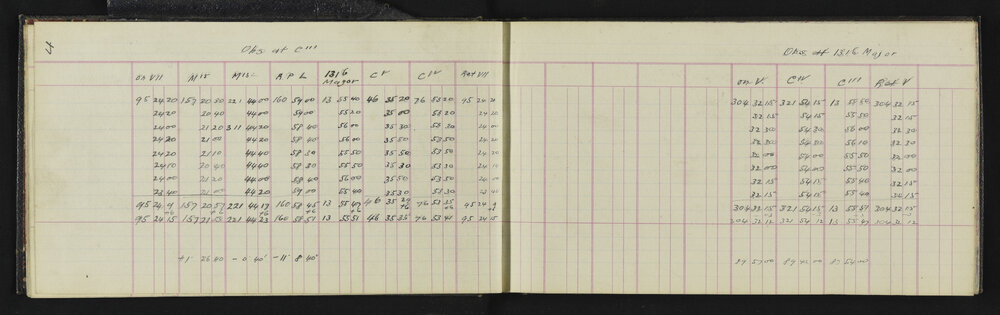 4
Obs at C'''
on VII M15 M15- R P L 1316 Major C V C IV Ret VII
95 24 20 157 20 50 221 44 00 160 59 00 13 55 40 46 35 20 76 53 20 95 24 20
24 20 20 40 44 00 59 00 55 20 35 00 53 20 24 20
24 00 21 20 311 44 20 58 40 56 00 35 30 53 30 24 00
24 20 21 00 44 20 58 40 56 00 35 50 53 50 24 20
24 20 21 10 44 40 58 30 55 50 35 50 53 50 24 20
24 10 20 40 44 40 58 30 55 50 35 30 53 30 24 10
24 00 21 20 44 00 58 40 56 00 35 50 53 50 24 00
23 40 21 00 44 20 59 00 55 40 35 30 53 30 23 40
95 24 9 157 20 57 221 44 17 160 58 45 13 55 47 46 35 29 76 53 35 95 24 9
+6 +6 +6 +6 +6
95 24 15 157 21 221 44 23 160 58 51 13 55 51 46 35 35 76 53 41 95 24 15
+1' 26 40 - 0' 40" - 11' 8' 40"
Obs at 1316 Major
on V C IV C III Ret V
304 32 15 321 54 15 13 55 50 304 32 15
32 15 54 15 55 50 32 15
32 30 54 30 56 00 32 30
32 30 54 30 56 10 32 30
32 00 54 00 55 50 32 00
32 00 54 00 55 50 32 00
32 15 54 15 55 50 32 15
32 15 54 15 55 40 32 15
304 32 15 321 54 15 13 55 51 304 32 15
304 32 12 321 54 12 13 55 47 304 32 12
89 57 00 89 42 00 87 54 00